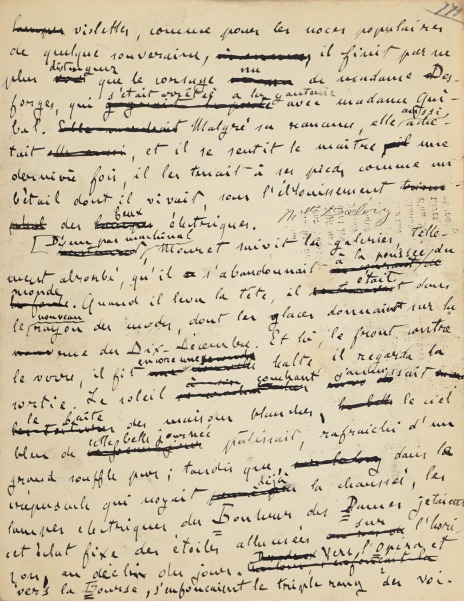 177
violettes, comme pour les noces populaires
de quelque souveraine, il finit par ne
plus distinguer que le corsage nu de madame Des-
forges, qui s'était arrêtée à la ganterie avec madame Gui-
bal. Malgré sa rancune, elle aussi ache-
tait, et il se sentit le maître, une
dernière fois, il les tenait à ses pieds, comme un
bétail dont il vivait, sous l'éblouissement
des feux électriques.
D'un pas machinal, Mouret suivit les galeries, telle-
ment absorbé, qu'il s'abandonnait à la poussée du
monde. Quand il leva la tête, il était dans
le nouveau rayon des modes, dont les glaces donnaient sur la
rue du Dix-Décembre. Et là, le front contre
le verre, il fit encore une halte, il regarda la
sortie. Le soleil couchant jaunissait
le faîte des maisons blanches, le ciel
bleu de cette belle journée pâlissait, rafraîchi d'un
grand souffle pur; tandis que, dans le
crépuscule qui noyait déjà la chaussée, les
lampes électriques du Bonheur des Dames jetaient
cet éclat fixe des étoiles allumées sur l'hori-
zon, au déclin du jour. Vers l'Opéra et
vers la Bourse, s'enfonçaient le triple rang des voi-